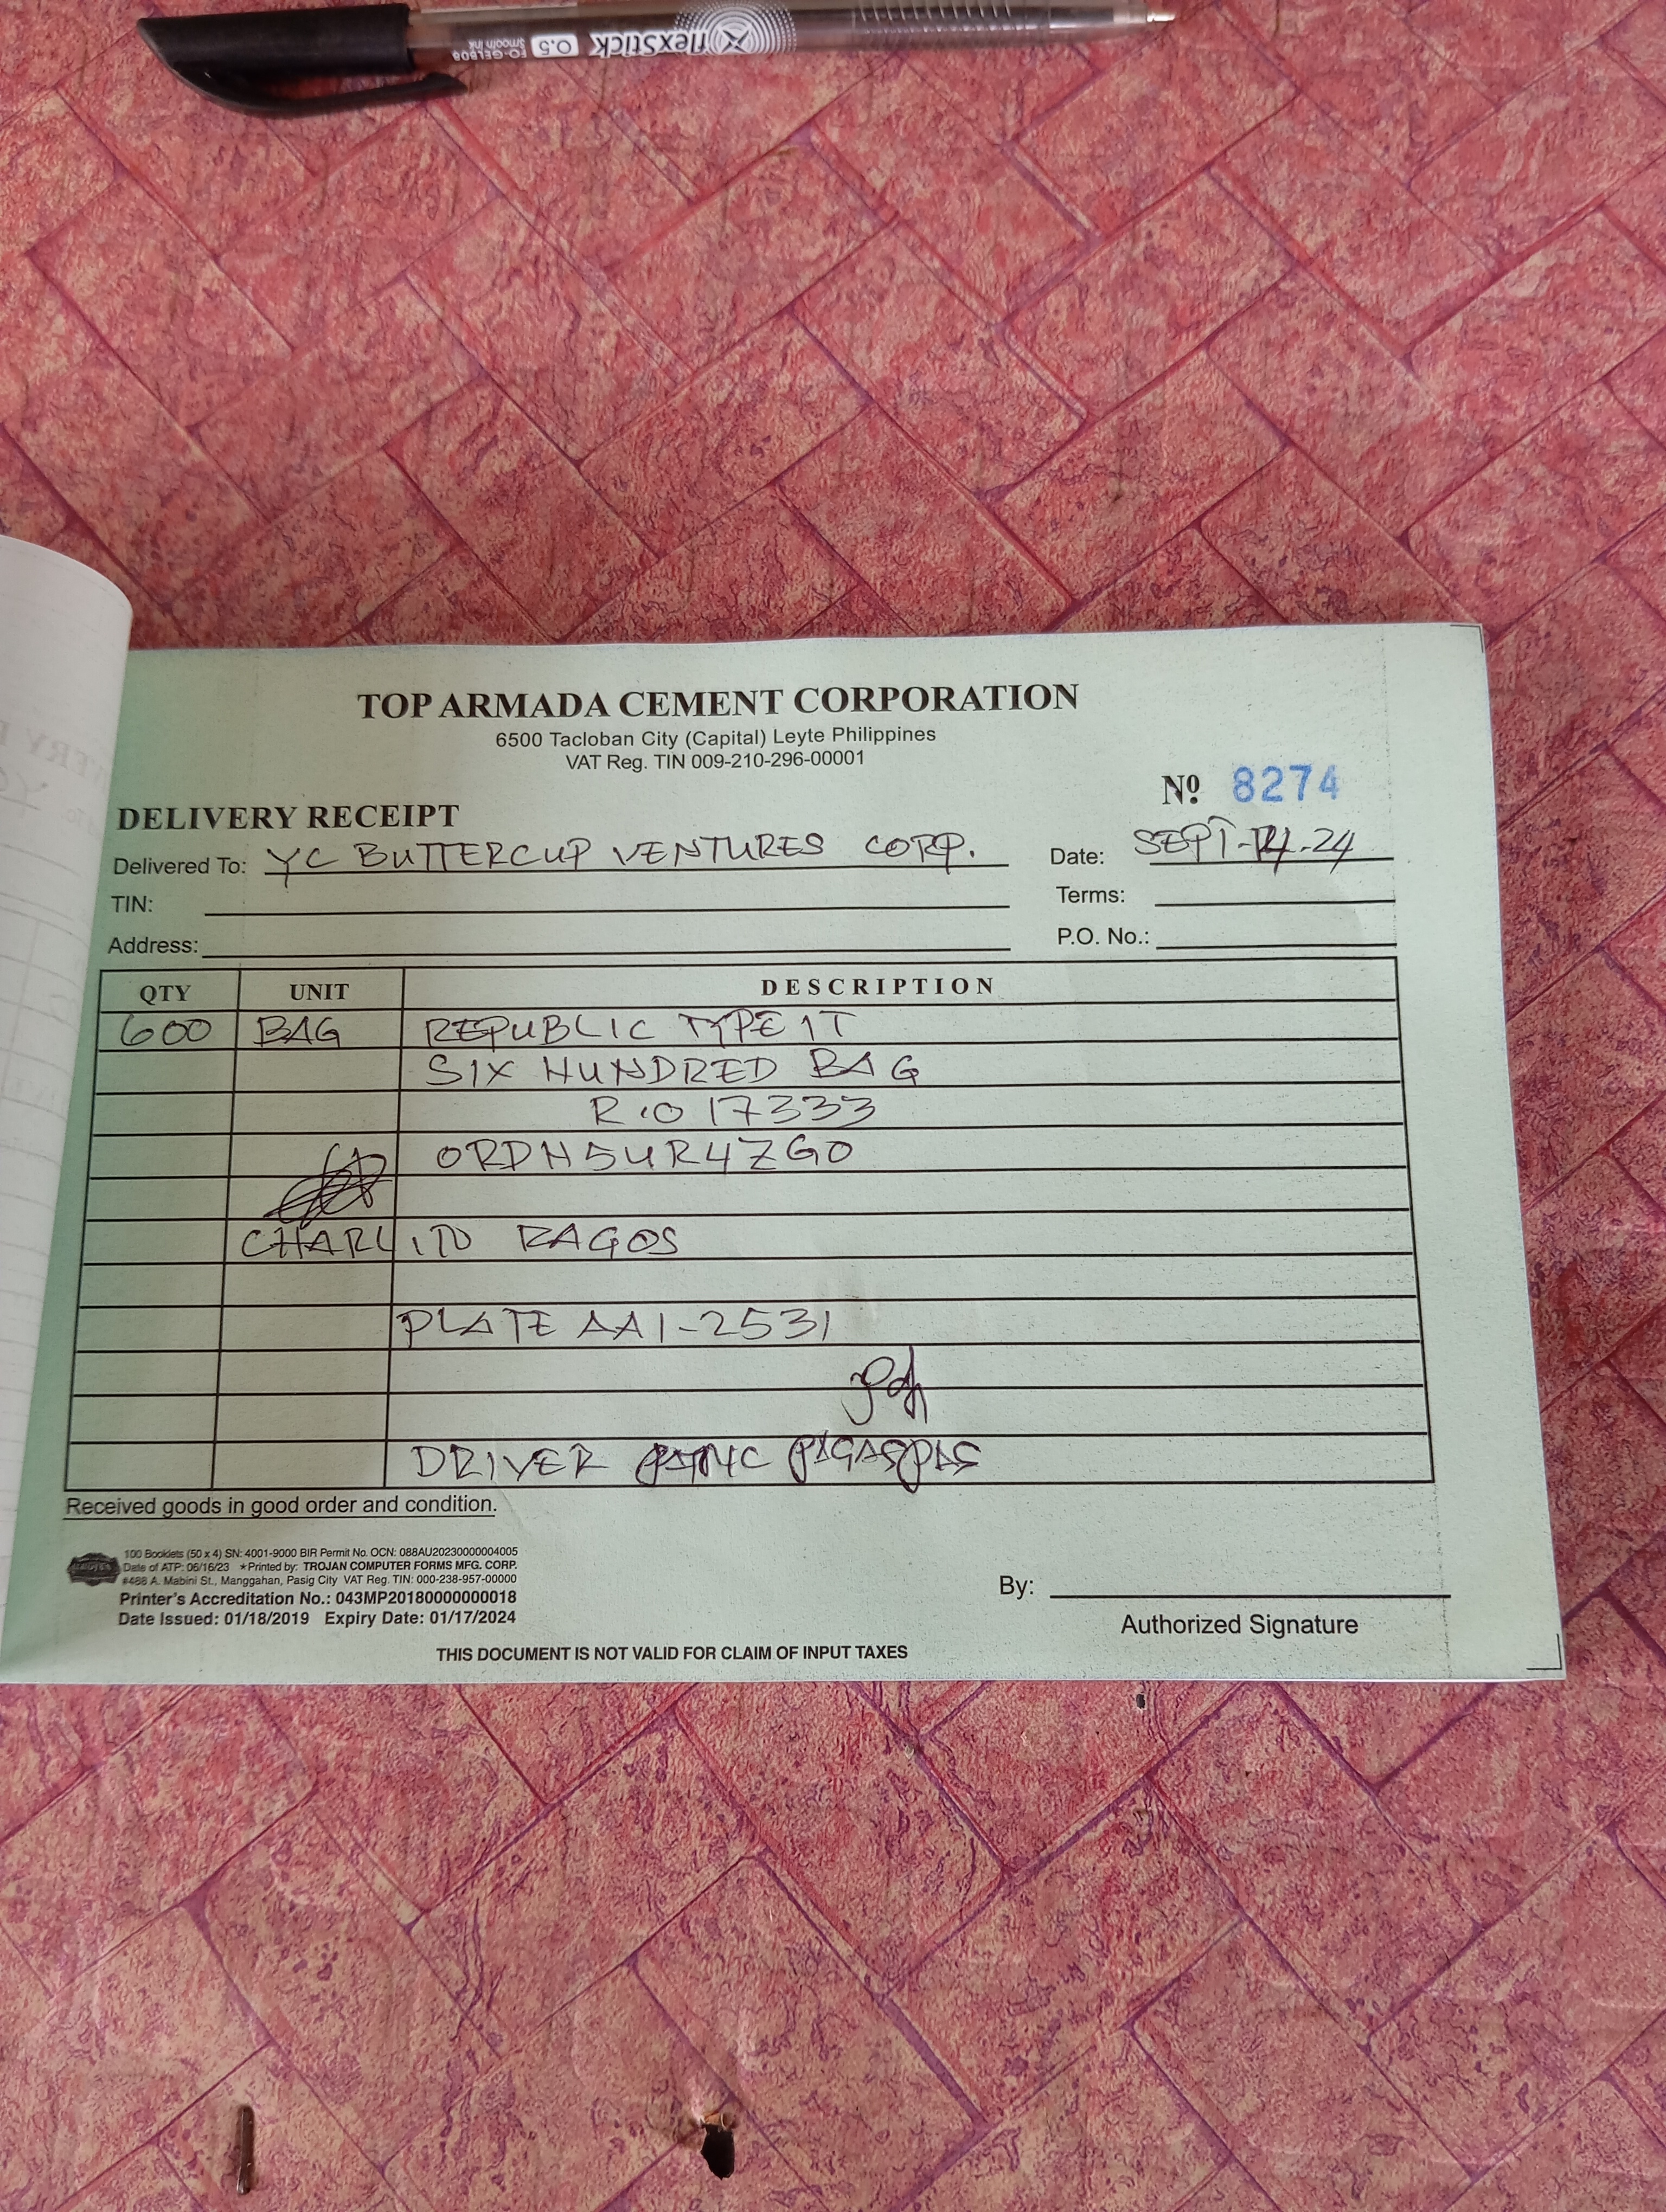 flexStick 0.5
FO-GELB08
Smooth ink
TOP ARMADA CEMENT CORPORATION
6500 Tacloban City (Capital) Leyte Philippines
VAT Reg. TIN 009-210-296-00001
Nº 8274
DELIVERY RECEIPT
Delivered To: YC BUTTERCUP VENTURES CORP. Date: SEPT-14-24
TIN: Terms:
Address: P.O. No.:
QTY UNIT DESCRIPTION
600 BAG REPUBLIC TYPE 1T
SIX HUNDRED BAG
R.O 17333
ORDH5UR4ZGO
CHARLITO RAGOS
PLATE AA1-2531
DRIVER
Received goods in good order and condition.
100 Booklets (50 x 4) SN: 4001-9000 BIR Permit No. OCN: 088AU20230000004005
Date of ATP: 06/16/23 ★Printed by: TROJAN COMPUTER FORMS MFG. CORP.
#488 A. Mabini St., Manggahan, Pasig City VAT Reg. TIN: 000-238-957-00000
Printer's Accreditation No.: 043MP20180000000018
Date Issued: 01/18/2019 Expiry Date: 01/17/2024
By:
Authorized Signature
THIS DOCUMENT IS NOT VALID FOR CLAIM OF INPUT TAXES